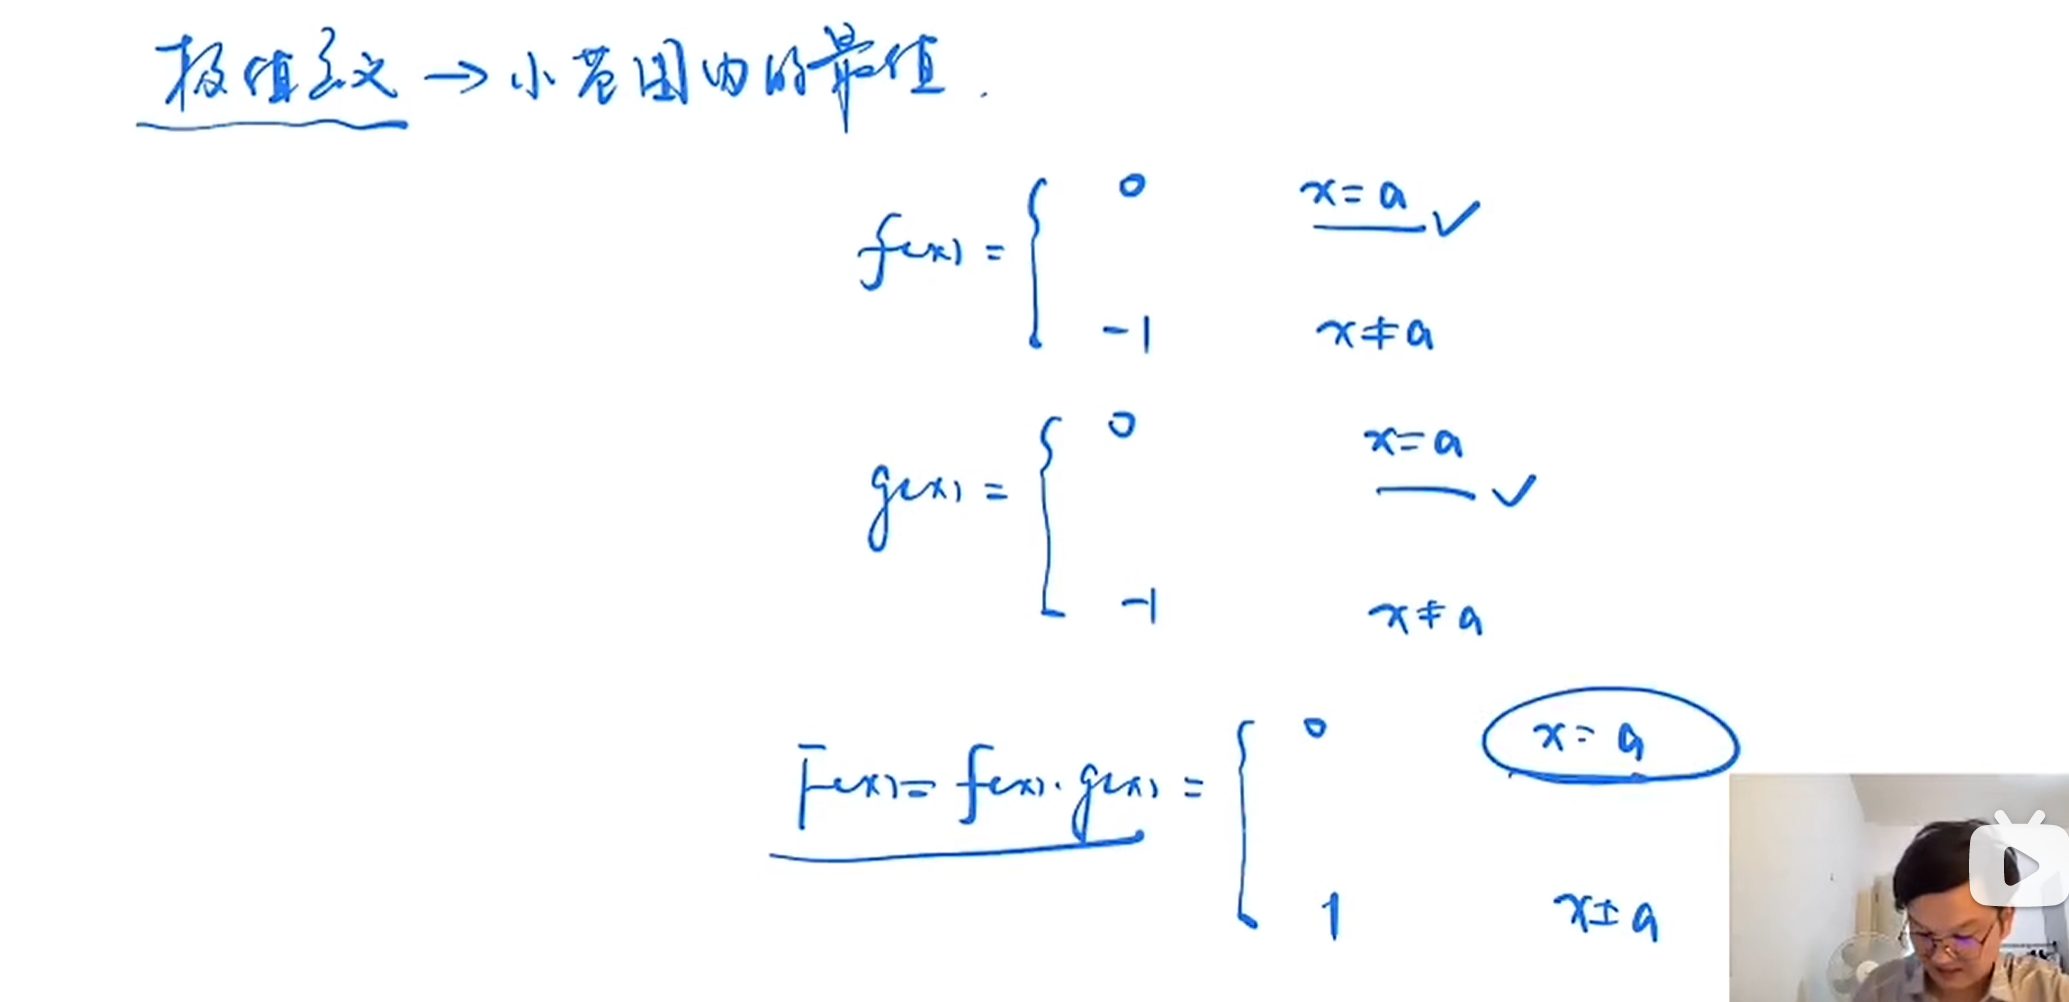 极值定义 → 小范围内的最值.
f(x) = { 0 x = a ✓
-1 x ≠ a
g(x) = { 0 x = a ✓
-1 x ≠ a
F(x) = f(x)·g(x) = { 0 x = a
1 x ≠ a